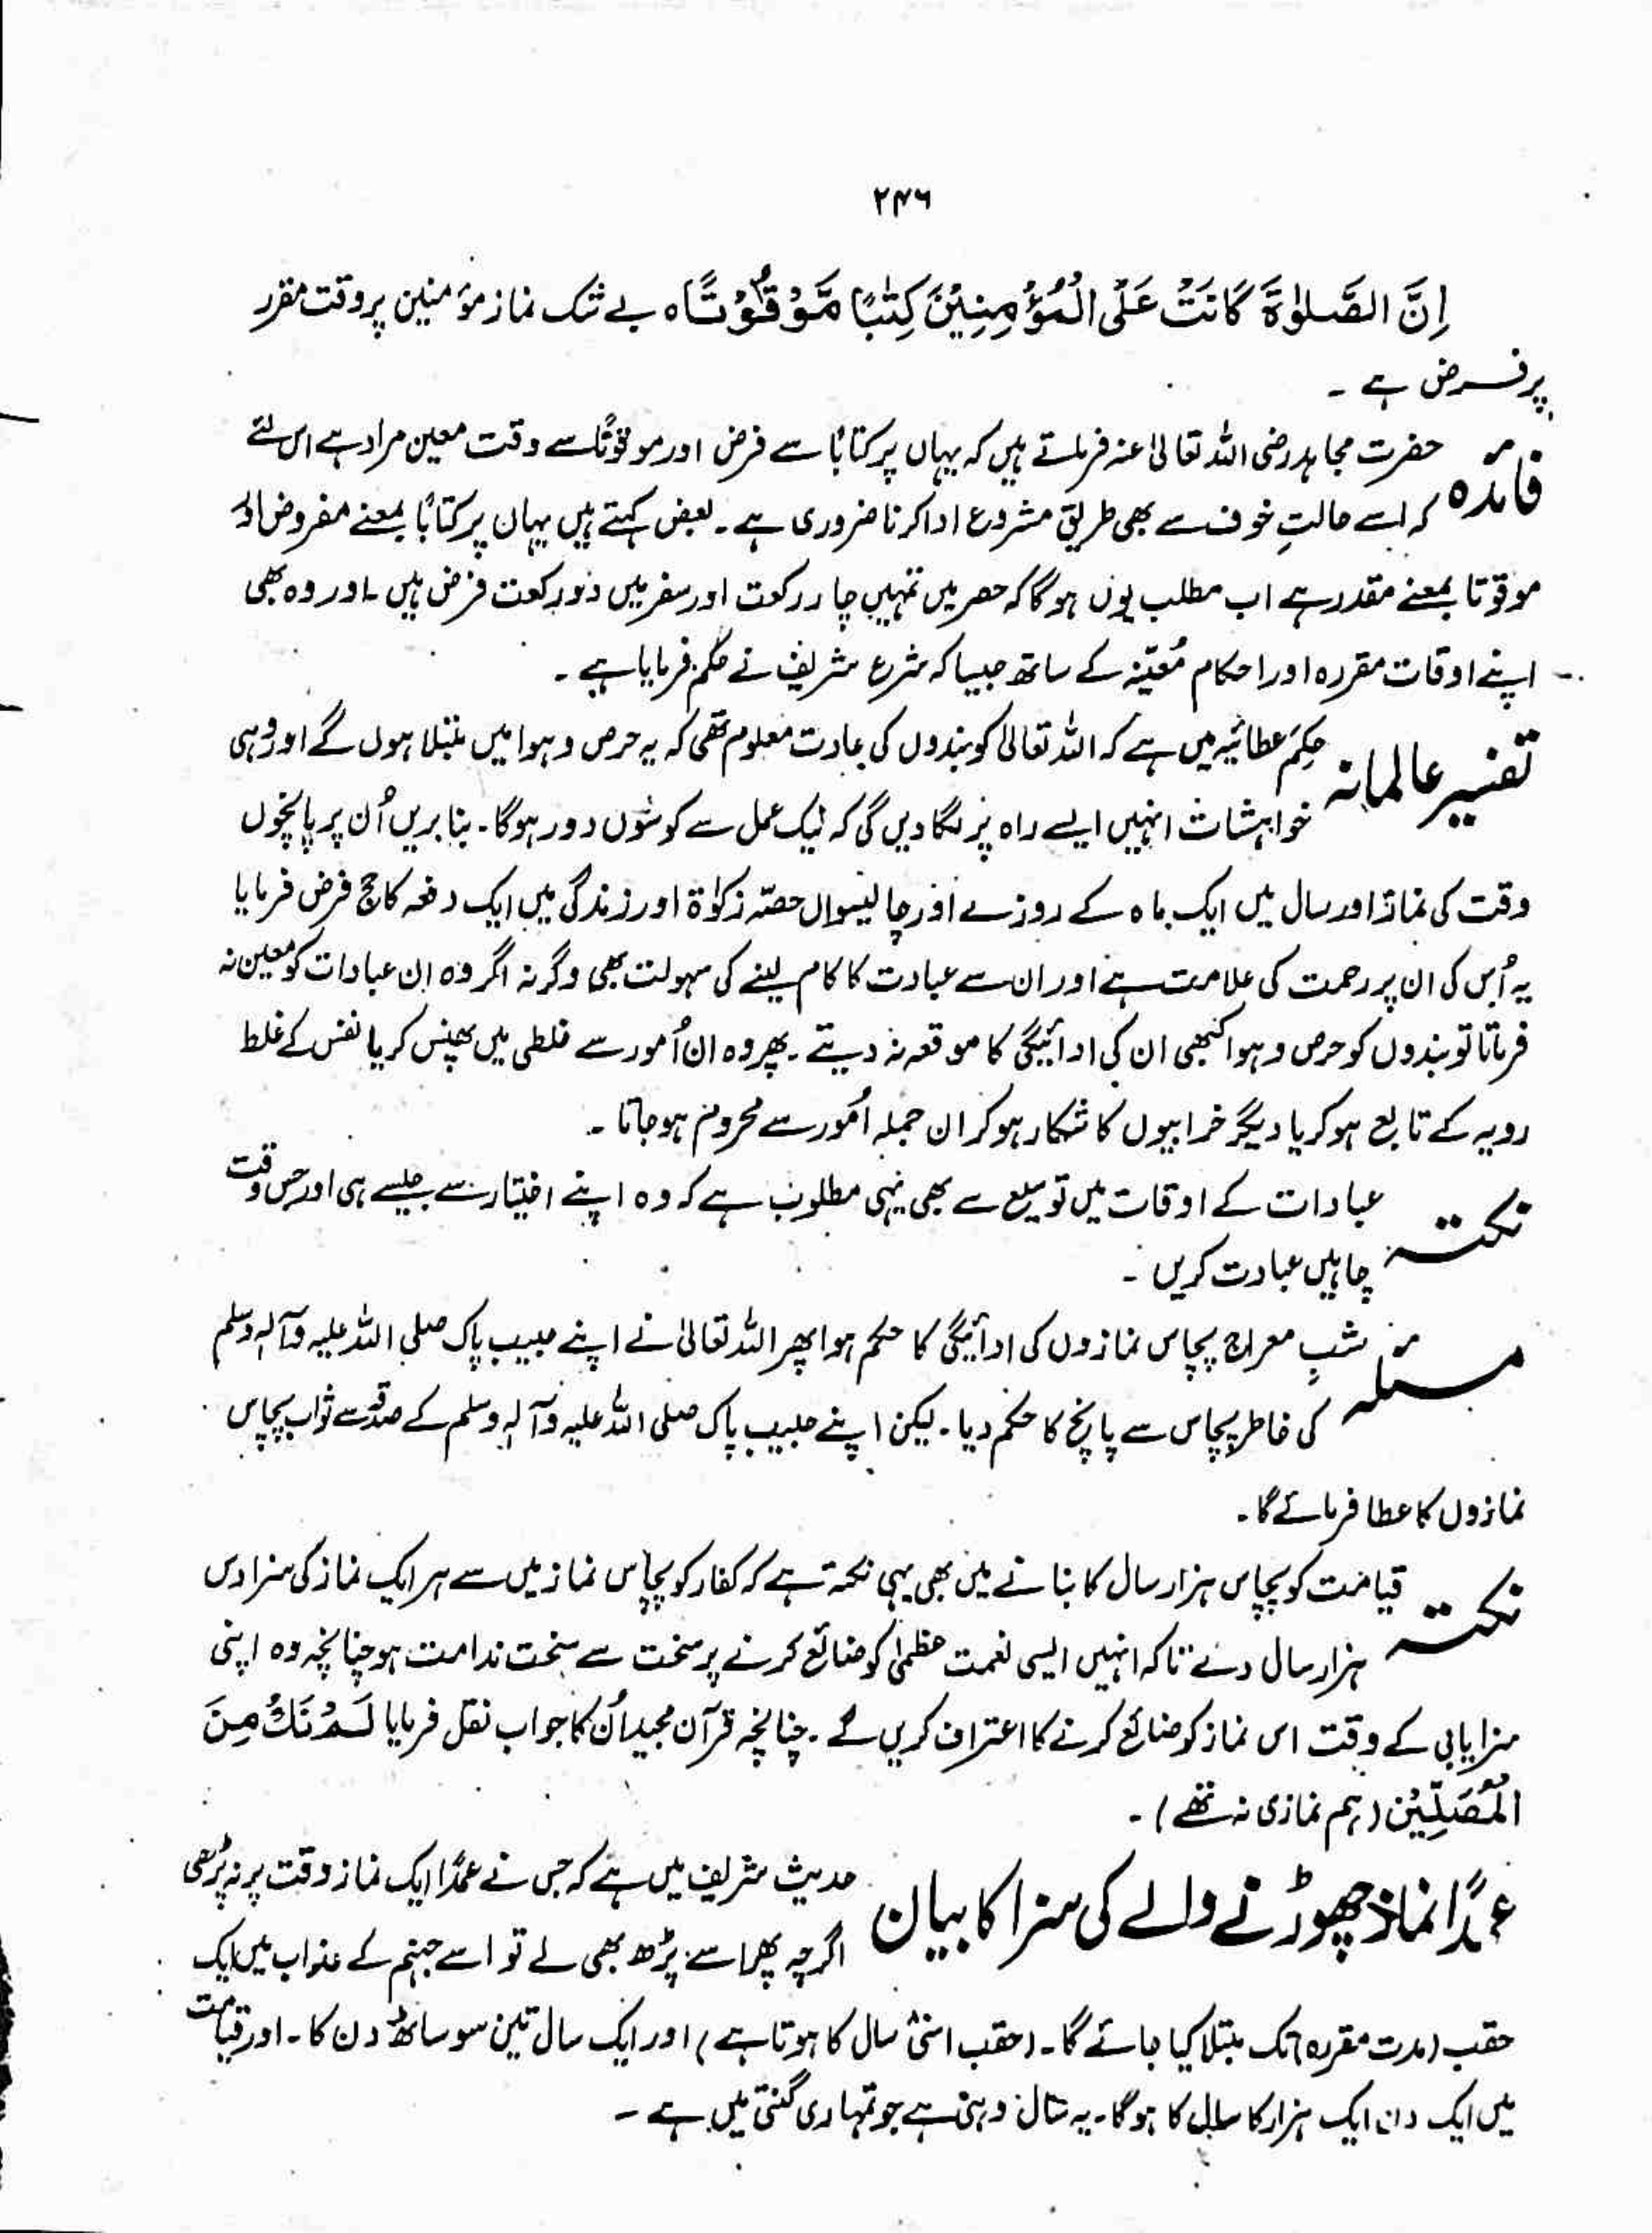 ۲۴۶
اِنَّ الصَّلٰوةَ كَانَتْ عَلَى الْمُؤْمِنِيْنَ كِتٰبًا مَّوْقُوْتًا ہ بے شک نماز مؤمنین پر وقت مقرر
پر فرض ہے ۔
فائدہ حضرت مجاہد رضی اللہ تعالیٰ عنہ فرماتے ہیں کہ یہاں پر کتابًا سے فرض اور موقوتًا سے وقت معین مراد ہے اس لئے
کہ اسے حالتِ خوف سے بھی طریق مشروع ادا کرنا ضروری ہے ۔ بعض کہتے ہیں یہاں پر کتابًا بمعنے مفروض اور
موقوتا بمعنے مقدر ہے اب مطلب یوں ہوگا کہ حضر میں تمہیں چار رکعت اور سفر میں دو رکعت فرض ہیں ۔ اور وہ بھی
اپنے اوقات مقررہ اور احکام مُعیّنہ کے ساتھ جیسا کہ شرع شریف نے حکم فرمایا ہے ۔
تفسیر عالمانہ حِکَم عطائیہ میں ہے کہ اللہ تعالیٰ کو بندوں کی عادت معلوم تھی کہ یہ حرص و ہوا میں مبتلا ہوں گے اور وہی
خواہشات انہیں ایسے راہ پر لگا دیں گی کہ نیک عمل سے کوسوں دور ہوگا ۔ بنا بریں اُن پر پانچوں
وقت کی نماز اور سال میں ایک ماہ کے روزے اور چالیسواں حصّہ زکوٰۃ اور زندگی میں ایک دفعہ کا حج فرض فرمایا
یہ اُس کی ان پر رحمت کی علامت ہے اور ان سے عبادت کا کام لینے کی سہولت بھی وگرنہ اگر وہ ان عبادات کو معین نہ
فرماتا تو بندوں کو حرص و ہوا کبھی ان کی ادائیگی کا موقعہ نہ دیتے ۔ پھر وہ ان اُمور سے غلطی میں پھنس کر یا نفس کے غلط
رویہ کے تابع ہو کر یا دیگر خرابیوں کا شکار ہو کر ان جملہ اُمور سے محروم ہو جاتا ۔
نکتہ عبادات کے اوقات میں توسیع سے بھی یہی مطلوب ہے کہ وہ اپنے اختیار سے جیسے ہی اور جس وقت
چاہیں عبادت کریں ۔
مسئلہ شبِ معراج پچاس نمازوں کی ادائیگی کا حکم ہوا پھر اللہ تعالیٰ نے اپنے حبیب پاک صلی اللہ علیہ وآلہ وسلم
کی خاطر پچاس سے پانچ کا حکم دیا ۔ لیکن اپنے حبیب پاک صلی اللہ علیہ وآلہ وسلم کے صدقے سے ثواب پچاس
نمازوں کا عطا فرمائے گا ۔
نکتہ قیامت کو پچاس ہزار سال کا بنانے میں بھی یہی نکتہ ہے کہ کفار کو پچاس نماز میں سے ہر ایک نماز کی سزا دس
ہزار سال دے تاکہ انہیں ایسی نعمت عظمیٰ کو ضائع کرنے پر سخت سے سخت ندامت ہو چنانچہ وہ اپنی
سزایابی کے وقت اس نماز کو ضائع کرنے کا اعتراف کریں گے ۔ چنانچہ قرآن مجید اُن کا جواب نقل فرمایا لَمْ نَكُ مِنَ
الْمُصَلِّيْنَ (ہم نمازی نہ تھے) ۔
عمدًا نماز چھوڑنے والے کی سزا کا بیان حدیث شریف میں ہے کہ جس نے عمدًا ایک نماز وقت پر نہ پڑھی
اگرچہ پھر اسے پڑھ بھی لے تو اسے جہنم کے عذاب میں ایک
حقب (مدت مقررہ) تک مبتلا کیا جائے گا ۔ (حقب اسّی سال کا ہوتا ہے) اور ایک سال تین سو ساٹھ دن کا ۔ اور قیامت
میں ایک دن ایک ہزار کا سال کا ہوگا ۔ یہ سال وہی ہے جو تمہاری گنتی میں ہے ۔